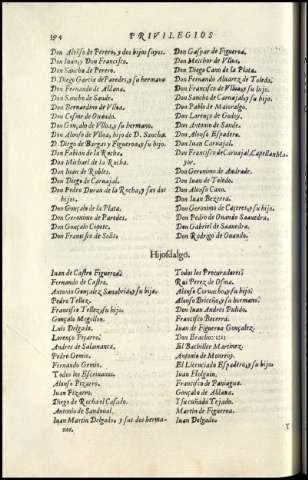 194 PRIVILEGIOS
Don Alonso de Perero, y dos hijos suyos.
Don Iuan, y Don Francisco.
Don Sancho de Perero.
D. Diego Garcia de Paredes, y su hermano
Don Fernando de Aldana.
Don Sancho de Sande.
Don Bernardino de Vlloa.
Don Cosme de Ouando.
Don Gonçalo de Vlloa, y su hermano.
Don Alonso de Vlloa, hijo de D. Sancho.
D. Diego de Vargas y Figueroa, y su hijo.
Don Fabian de la Rocha.
Don Michael de la Rocha.
Don Iuan de Robles.
Don Diego de Carnajal.
Don Pedro Duran de la Rocha, y sus dos
hijos.
Don Gonçalo de la Plata.
Don Geronimo de Paredes.
Don Gonçalo Copete.
Don Francisco de Solis.
Don Gaspar de Figueroa.
Don Melchor de Vlloa.
Don Diego Cano de la Plata.
Don Fernando Aluarez de Toledo.
Don Francisco de Vlloa, y su hijo.
Don Sancho de Carnajal, y su hijo.
Don Pablo de Mairalgo.
Don Lorenço de Godoy.
Don Antonio de Sande.
Don Alonso Espadero.
Don Iuan Carnajal.
Don Francisco de Carnajal, Capellan Ma-
yor.
Don Geronimo de Andrade.
Don Iuan de Toledo.
Don Alonso Cano.
Don Iuan Bezerra.
Don Geronimo de Caceres, y su hijo.
Don Pedro de Ouando Saauedra.
Don Gabriel de Saauedra.
Don Rodrigo de Ouando.
Hijosdalgo.
Iuan de Castro Figueroa.
Fernando de Castro.
Antonio Gonçalez Sanabria, y su hijo.
Pedro Tellez.
Francisco Tellez, y su hijo.
Gonçalo Mogollon.
Luis Delgado.
Lorenço Piçarro.
Andres de Salamanca.
Pedro Gemio.
Fernando Gemio.
Todos los Escriuanos.
Alonso Piçarro.
Iuan Piçarro.
Diego de Rocha el Casado.
Antonio de Sandoual.
Iuan Martin Delgado, y sus dos herma-
nos.
Todos los Procuradores.
Rui Perez de Osma.
Alonso Coruacho, y su hijo.
Alonso Briceño, y su hermano.
Don Iuan Andres Pulido.
Francisco Becerra.
Iuan de Figueroa Gonçalez.
Don
El Bachiller Marinez.
Antonio de Monroy.
El Licenciado Espadero, y su hijo
Iuan Holguin.
Francisco de Paniagua.
Gonçalo de Aldana.
Y su cuñado Tejado.
Martin de Figueroa.
Iuan Delgado.